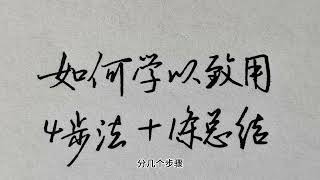 如何学以致用
4步法十条总结
分几个步骤